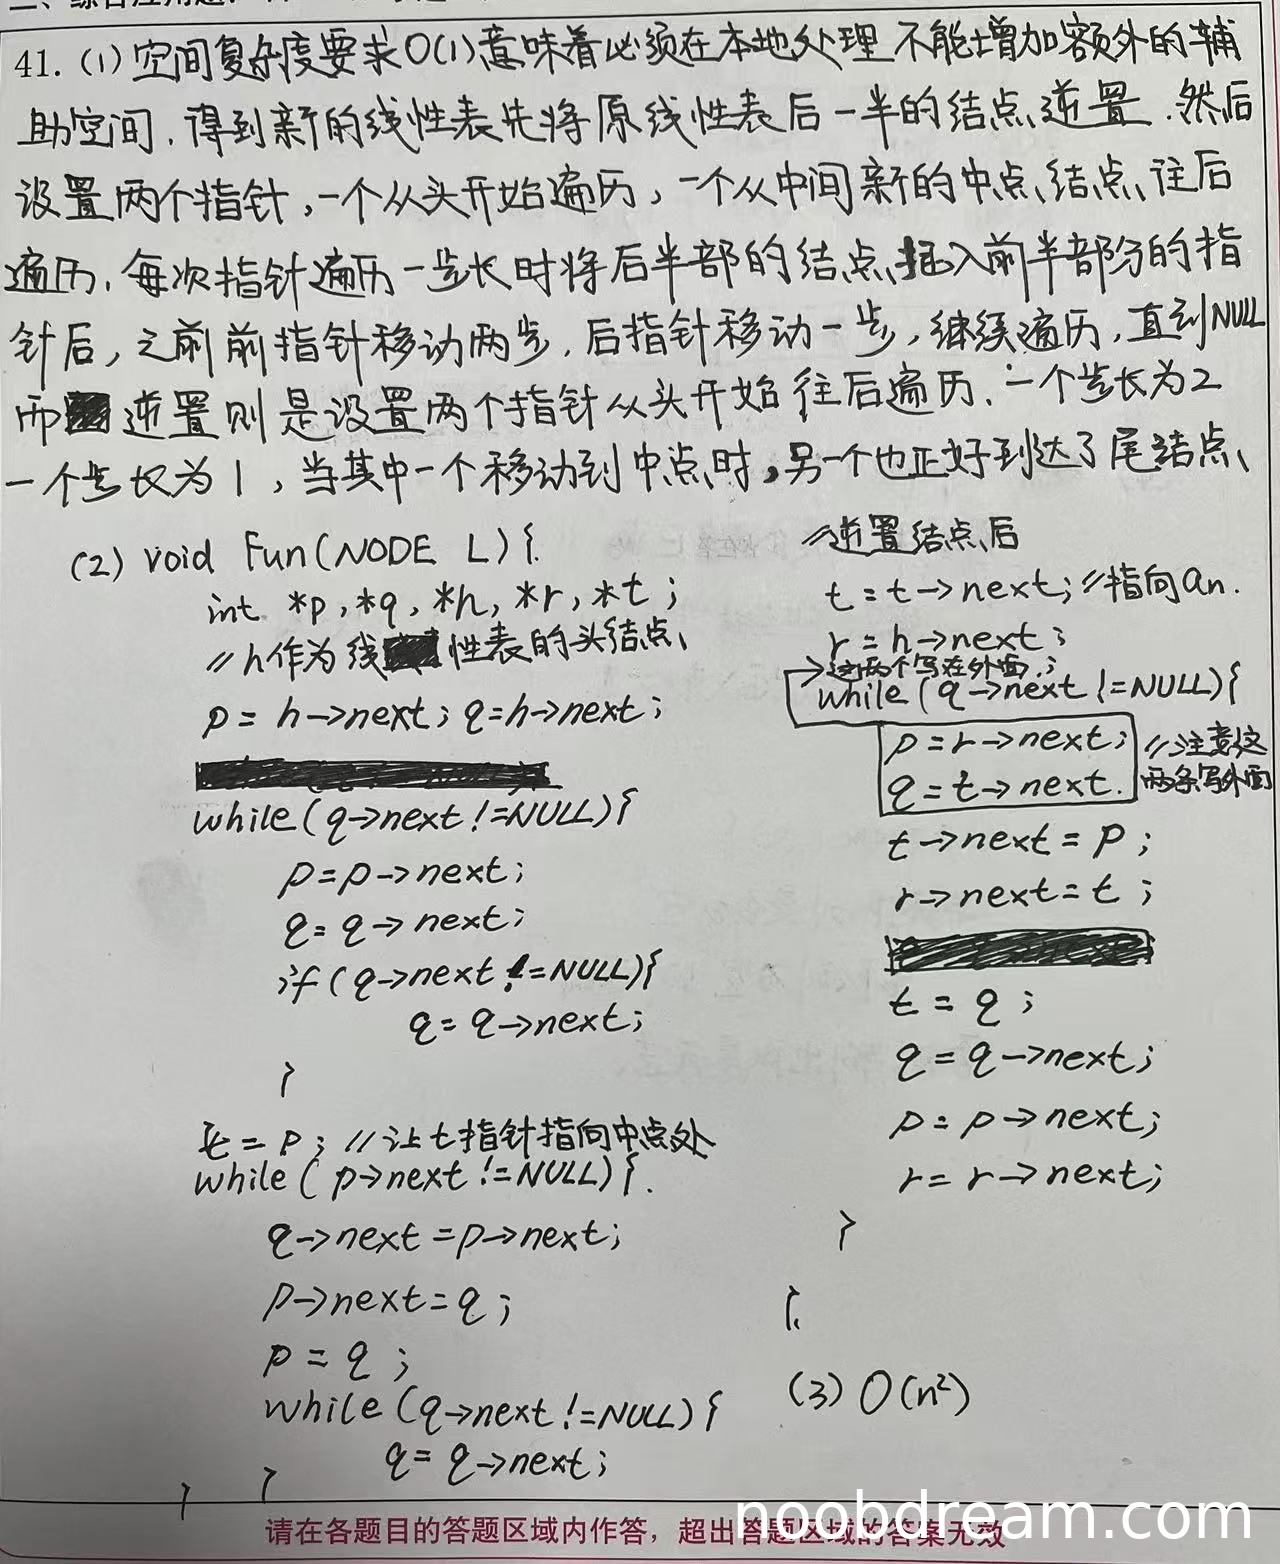 41. (1) 空间复杂度要求O(1)意味着必须在本地处理 不能增加额外的辅
助空间, 得到新的线性表先将原线性表后一半的结点逆置. 然后
设置两个指针, 一个从头开始遍历, 一个从中间新的中点结点往后
遍历, 每次指针遍历一步长时将后半部的结点插入前半部分的指
针后, 之前前指针移动两步, 后指针移动一步, 继续遍历, 直到NULL
而逆置则是设置两个指针从头开始往后遍历. 一个步长为2
一个步长为1, 当其中一个移动到中点时, 另一个也正好到达了尾结点
(2) void Fun(NODE L){
int *p, *q, *h, *r, *t;
//h作为线性表的头结点
p = h->next; q=h->next;
while(q->next!=NULL){
p=p->next;
q=q->next;
if(q->next!=NULL){
q=q->next;
}
t=p; //让t指针指向中点处
while(p->next!=NULL){
q->next=p->next;
p->next=q;
p=q;
while(q->next!=NULL){
q=q->next;
}
}
//逆置结点后
t=t->next; //指向an.
r=h->next;
这两个写在外面;
while(q->next!=NULL){
p=r->next; //注意这
q=t->next. 两条写外面
t->next=p;
r->next=t;
t=q;
q=q->next;
p=p->next;
r=r->next;
}
}.
(3) O(n²)
请在各题目的答题区域内作答，超出答题区域的答案无效
noobdream.com